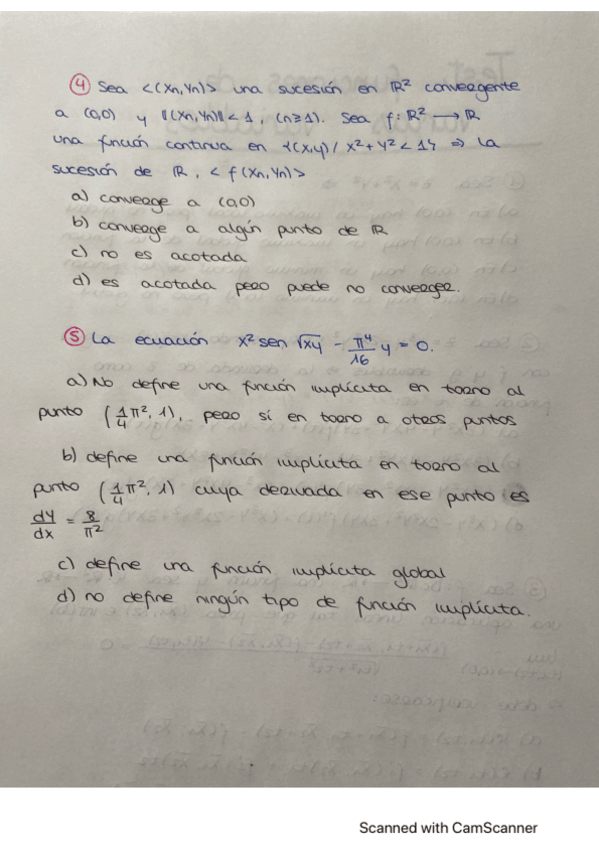 ④ Sea <(Xn,Yn)> una sucesión en ℝ² convergente
a (0,0) y ‖(Xn,Yn)‖<1, (n≥1). Sea f: ℝ² → ℝ
una función continua en {(x,y)/ x²+y²<1} ⇒ la
sucesión de ℝ, <f(Xn,Yn)>
a) converge a (0,0)
b) converge a algún punto de ℝ
c) no es acotada
d) es acotada pero puede no converger.
⑤ La ecuación x² sen √xy - π⁴/16 y = 0.
a) No define una función implícita en torno al
punto (1/4 π², 1), pero sí en torno a otros puntos
b) define una función implícita en torno al
punto (1/4 π², 1) cuya derivada en ese punto es
dy/dx = 8/π²
c) define una función implícita global
d) no define ningún tipo de función implícita.
Scanned with CamScanner